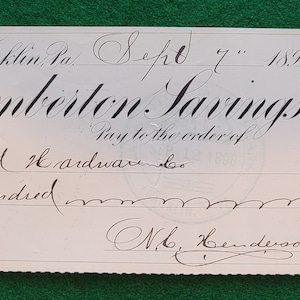 klin, Pa. Sept 7" 189
mberton Savings
Pay to the order of
d Hardware Co
ndred
N.C. Henderso